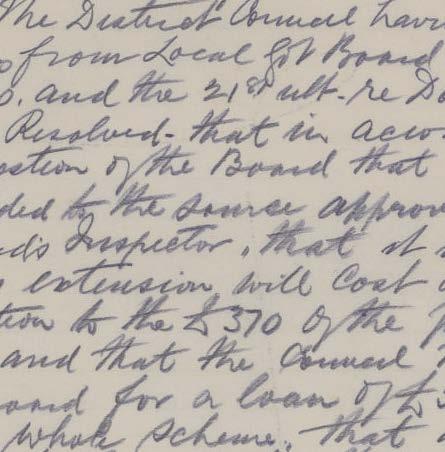 The District Council hav
from Local Gvt Board
o. and the 21st ult-re Do
Resolved- that in acco
estion of the Board that
ded to the source approv
d's Inspector, that it
extension will cost
tion to the £370 of the
and that the Council
oard for a loan of £
whole scheme, that